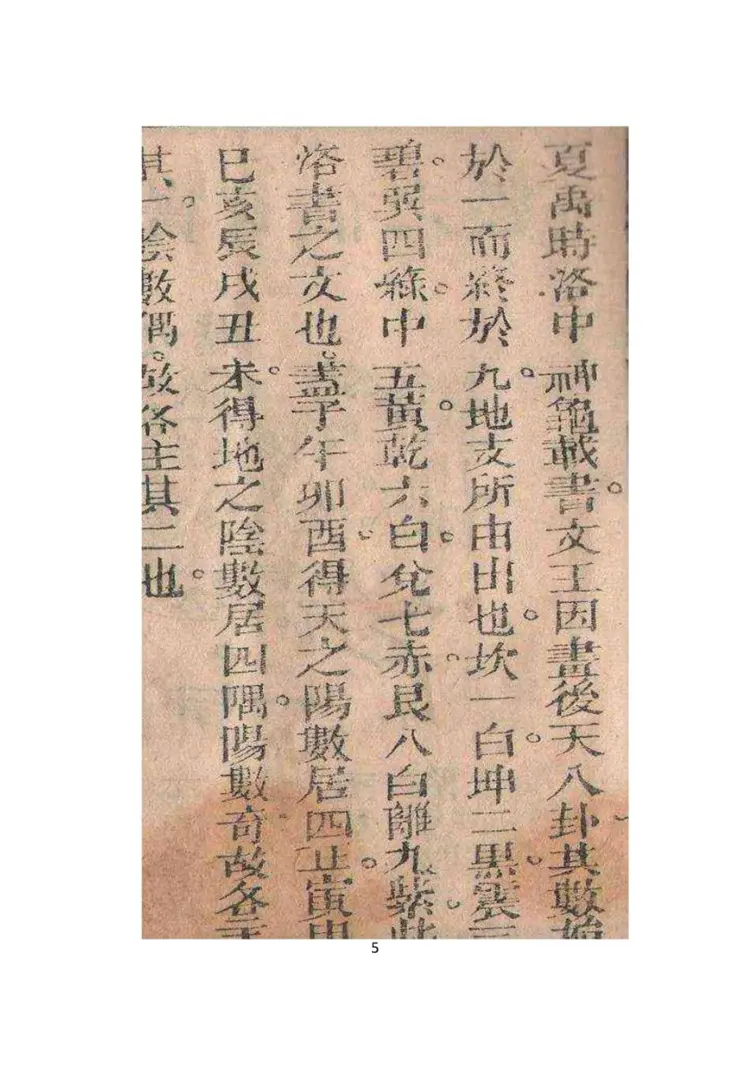 夏禹時洛中神龜載書。文王因畫後天八卦。其數始
於一而終於九。地支所由出也。坎一白。坤二黑。震三
碧。巽四綠。中五黃。乾六白。兌七赤。艮八白離九紫。此
洛書之文也。蓋子午卯酉。得天之陽數居四正。寅申
巳亥辰戌丑未。得地之陰數居四隅。陽數奇故各主
其一。陰數偶。故各主其二也。
5